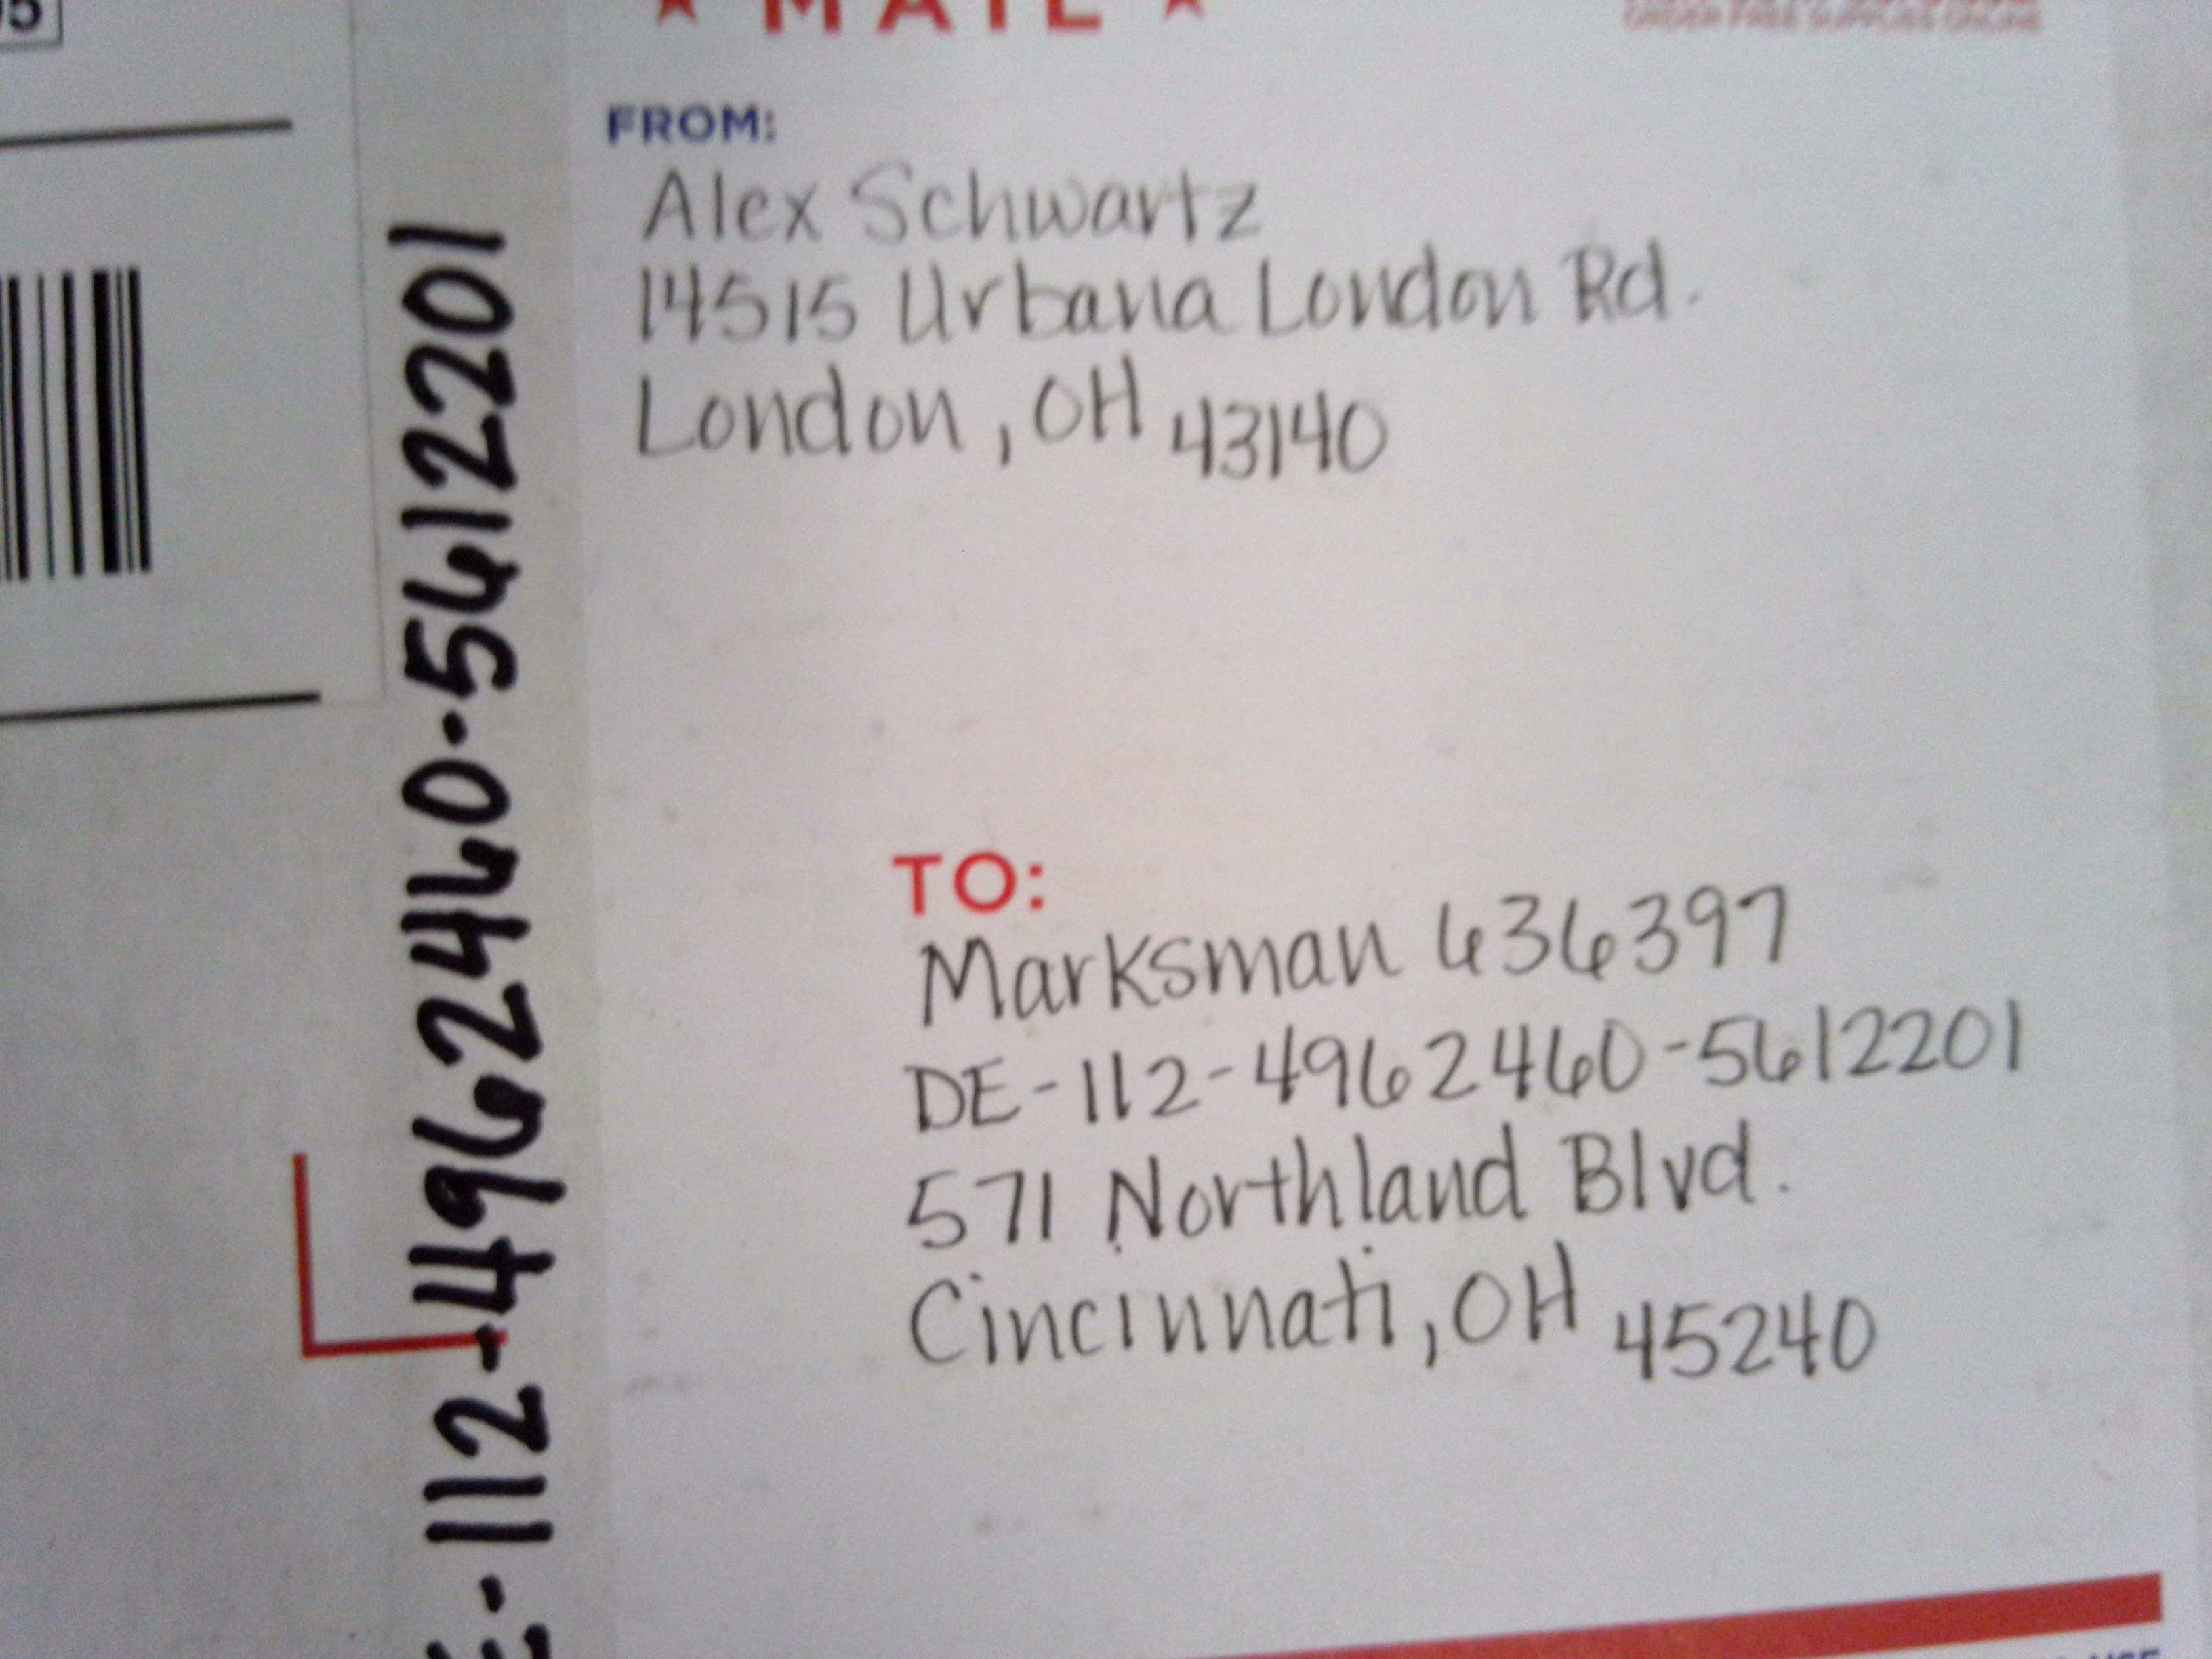 ★ MAIL ★
ORDER FREE SUPPLIES ONLINE
FROM:
Alex Schwartz
14515 Urbana London Rd.
London, OH 43140
TO:
Marksman 636397
DE-112-4962460-5612201
571 Northland Blvd.
Cincinnati, OH 45240
E-112-4962460-5612201